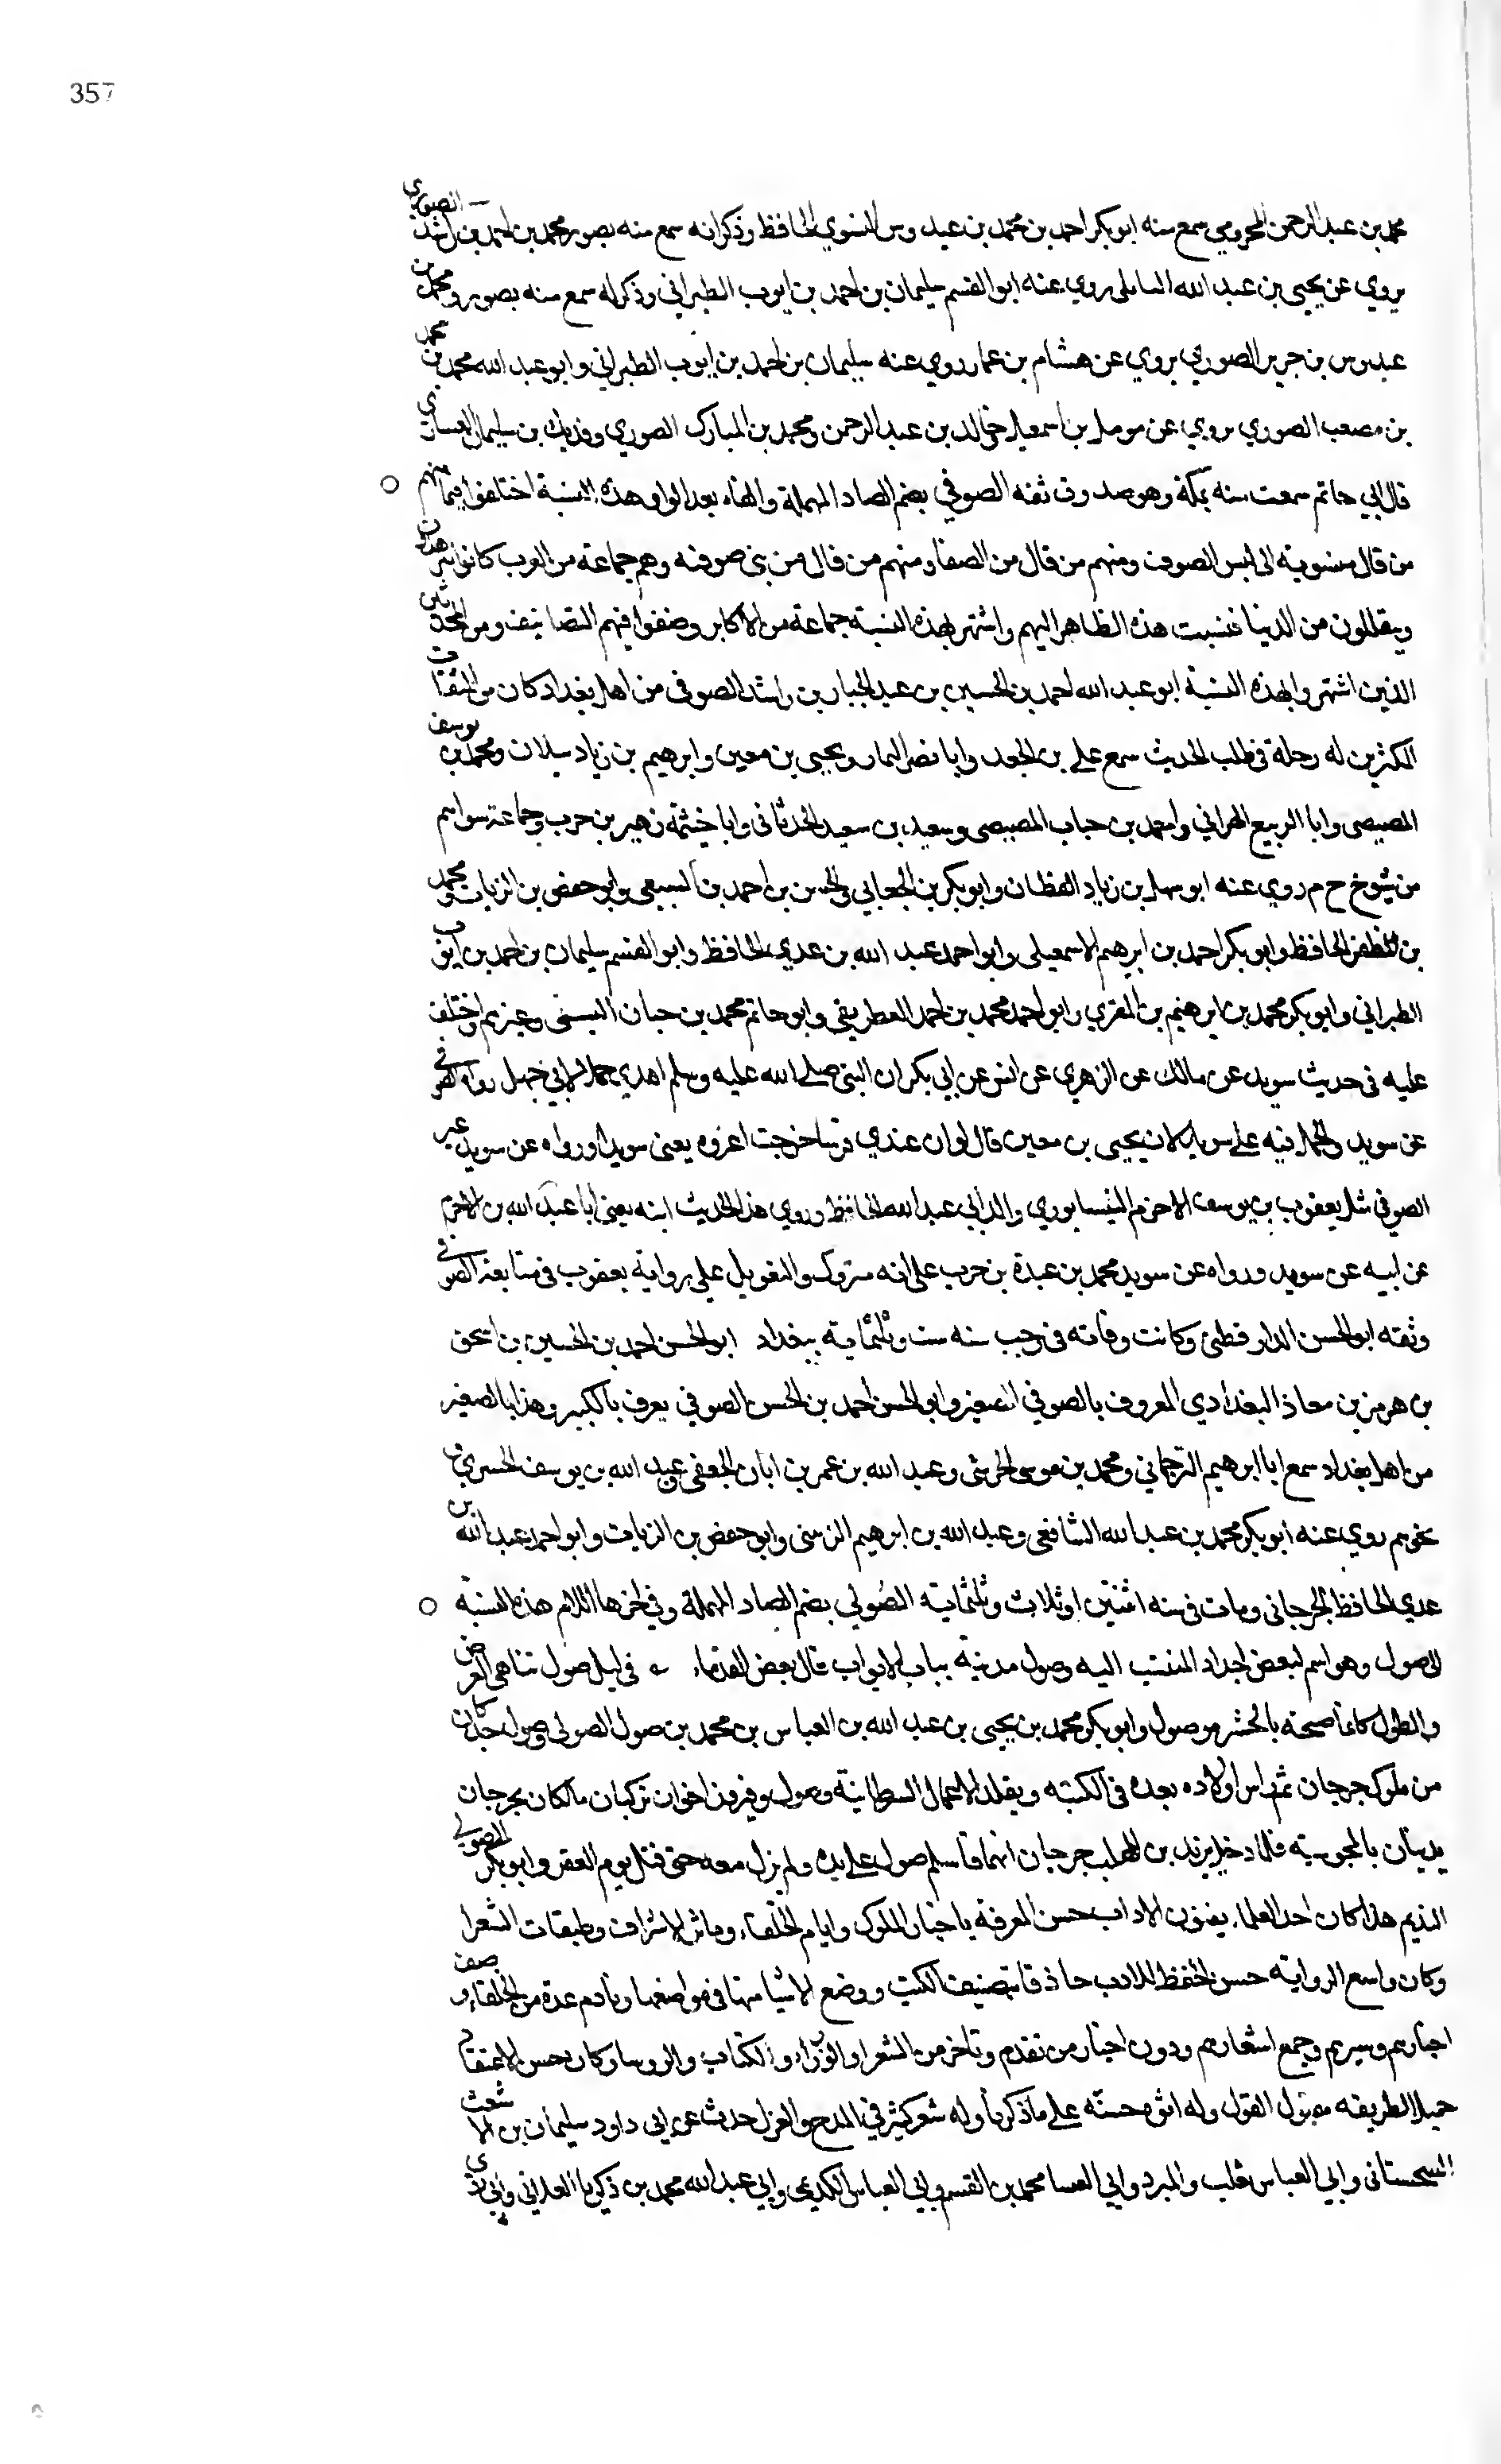 357
محمد بن عبد الرحمن المخرومي سمع منه ابو بكر احمد بن محمد بن عبدوس النسوي الحافظ وذكر انه سمع منه بصور محمد بن احمد بن راشد الصوري
يروي عن يحيى بن عبد الله البابلي روي عنه ابو القسم سليمان بن احمد بن ايوب الطبراني وذكر له سمع منه بصور ومحمد بن
عبدوس بن جرير الصوري يروي عن هشام بن عمار روي عنه سليمان بن احمد بن ايوب الطبراني وابو عبد الله محمد بن محمد
بن مصعب الصوري يروي عن مومل بن اسمعيل خالد بن عبد الرحمن ومحمد بن المبارك الصوري وفديك بن سليمان
قال ابي حاتم سمعت منه بمكة وهو صدوق ثقه الصوفي بضم الصاد المهملة والفاء بعد الواو هذه النسبة اختلفوا فيها منهم
من قال منسوبة الى لبس الصوف ومنهم من قال من الصفا ومنهم من قال من بني صوفه وهم جماعة من العرب كانوا يتزهدون
ويقللون من الدنيا فنسبت هذه الظاهر اليهم واشتهر بهذه النسبة جماعة من الاكابر وصنفوا فيهم التصانيف ومن المحدثين
الذين اشتهروا بهذه النسبة ابو عبد الله احمد بن الحسين بن عبد الجبار بن راشد الصوفي من اهل بغداد كان من الثقات
المكثرين له رحلة في طلب الحديث سمع علي بن الجعد وابا نصر التمار ويحيى بن معين وابرهيم بن زياد سبلان ومحمد بن يوسف
المصيصي وابا الربيع الزهراني واحمد بن جناب المصيصي وسويد بن سعيد الحدثاني وابا خيثمة زهير بن حرب وجماعة سواهم
من شيوخ خ م روي عنه ابو سهل بن زياد القطان وابو بكر بن الجعابي والحسن بن احمد بن السبيعي وابو حفص بن الزيات ومحمد
بن المظفر الحافظ وابو بكر احمد بن ابرهيم الاسمعيلي وابو احمد عبد الله بن عدي الحافظ وابو القسم سليمان بن احمد بن ايوب
الطبراني وابو بكر محمد بن ابرهيم بن المقري وابو احمد محمد بن احمد الغطريفي وابو حاتم محمد بن حبان البستي وغيرهم اختلف
عليه في حديث سويد عن مالك عن الزهري عن انس عن ابي بكر ان النبي صلى الله عليه وسلم اهدي جملا لابي جهل رواه الصوفي
عن سويد والحمل فيه على سويد لان يحيى بن معين قال لو ان عندي فرسا خرجت اغزوه يعني سويدا ورواه عن سويد غير
الصوفي مثل يعقوب بن يوسف الاخرم النيسابوري والد ابي عبد الله الحافظ وروي هذا الحديث ابنه يعني ابا عبد الله بن الاخرم
عن ابيه عن سويد ورواه عن سويد محمد بن عبدة بن حرب على انه متروك والتعويل على رواية يعقوب في متابعة الصوفي
وثقه ابو الحسن الدارقطني وكانت وفاته في رجب سنه ست وثلثماية ببغداد ابو الحسن احمد بن الحسين بن اسحق
بن هرمز بن معاذ البغدادي المعروف بالصوفي الصغير وابو الحسن احمد بن الحسن الصوفي يعرف بالكبير وهذا بالصغير
من اهل بغداد سمع ابا ابرهيم الترجماني ومحمد بن موسى الحرشي وعبد الله بن عمر بن ابان الجعفي وعبد الله بن يوسف
نحوهم روي عنه ابو بكر محمد بن عبد الله الشافعي وعبد الله بن ابرهيم الزينبي وابو حفص بن الزيات وابو احمد عبد الله بن
عدي الحافظ الجرجاني ومات في سنه اثنتين او ثلاث وثلثماية الصُولي بضم الصاد المهملة وفي اخرها اللام هذه النسبة
الى صول وهو اسم لبعض اجداد المنتسب اليه وصول مدينة بباب الابواب قال بعض القدماء في ليل صول تناهى العرض
والطول كانما صبحه بالحشر موصول وابو بكر محمد بن يحيى بن عبد الله بن العباس بن محمد بن صول الصولي وصول جد كان
من ملوك جرجان ثم راس اولاده بعده في الكتبه وتقلد الاعمال السلطانية وصول وفيروز اخوان تركيان ملكان بجرجان
يدينان بالمجوسية فلما دخل يزيد بن المهلب جرجان امنهما فاسلم صول على يده ولم يزل معه حتى قتل يوم العقر وابو بكر الصولي
النديم هذا كان احد العلماء بفنون الاداب حسن المعرفة باخبار الملوك وايام الخلفاء وماثر الاشراف وطبقات الشعرا
وكان واسع الرواية حسن الحفظ للادب حاذقا بتصنيف الكتب ووضع الاشيا منها في مواضعها ونادم عدة من الخلفاء وصنف
اخبارهم وسيرهم وجمع اشعارهم ودون اخبار من تقدم وتاخر من الشعرا والوزراء والكتاب والروسا وكان حسن الاعتقاد
جميل الطريقه مقبول القول وله ابوة حسنة على ما ذكرنا وله شعر كثير في المدح والغزل حدث عن ابي داود سليمان بن الاشعث
السجستاني وابي العباس ثعلب والمبرد وابي العينا محمد بن القسم وابي العباس الكديمي وابي عبد الله محمد بن زكريا الغلابي وابي